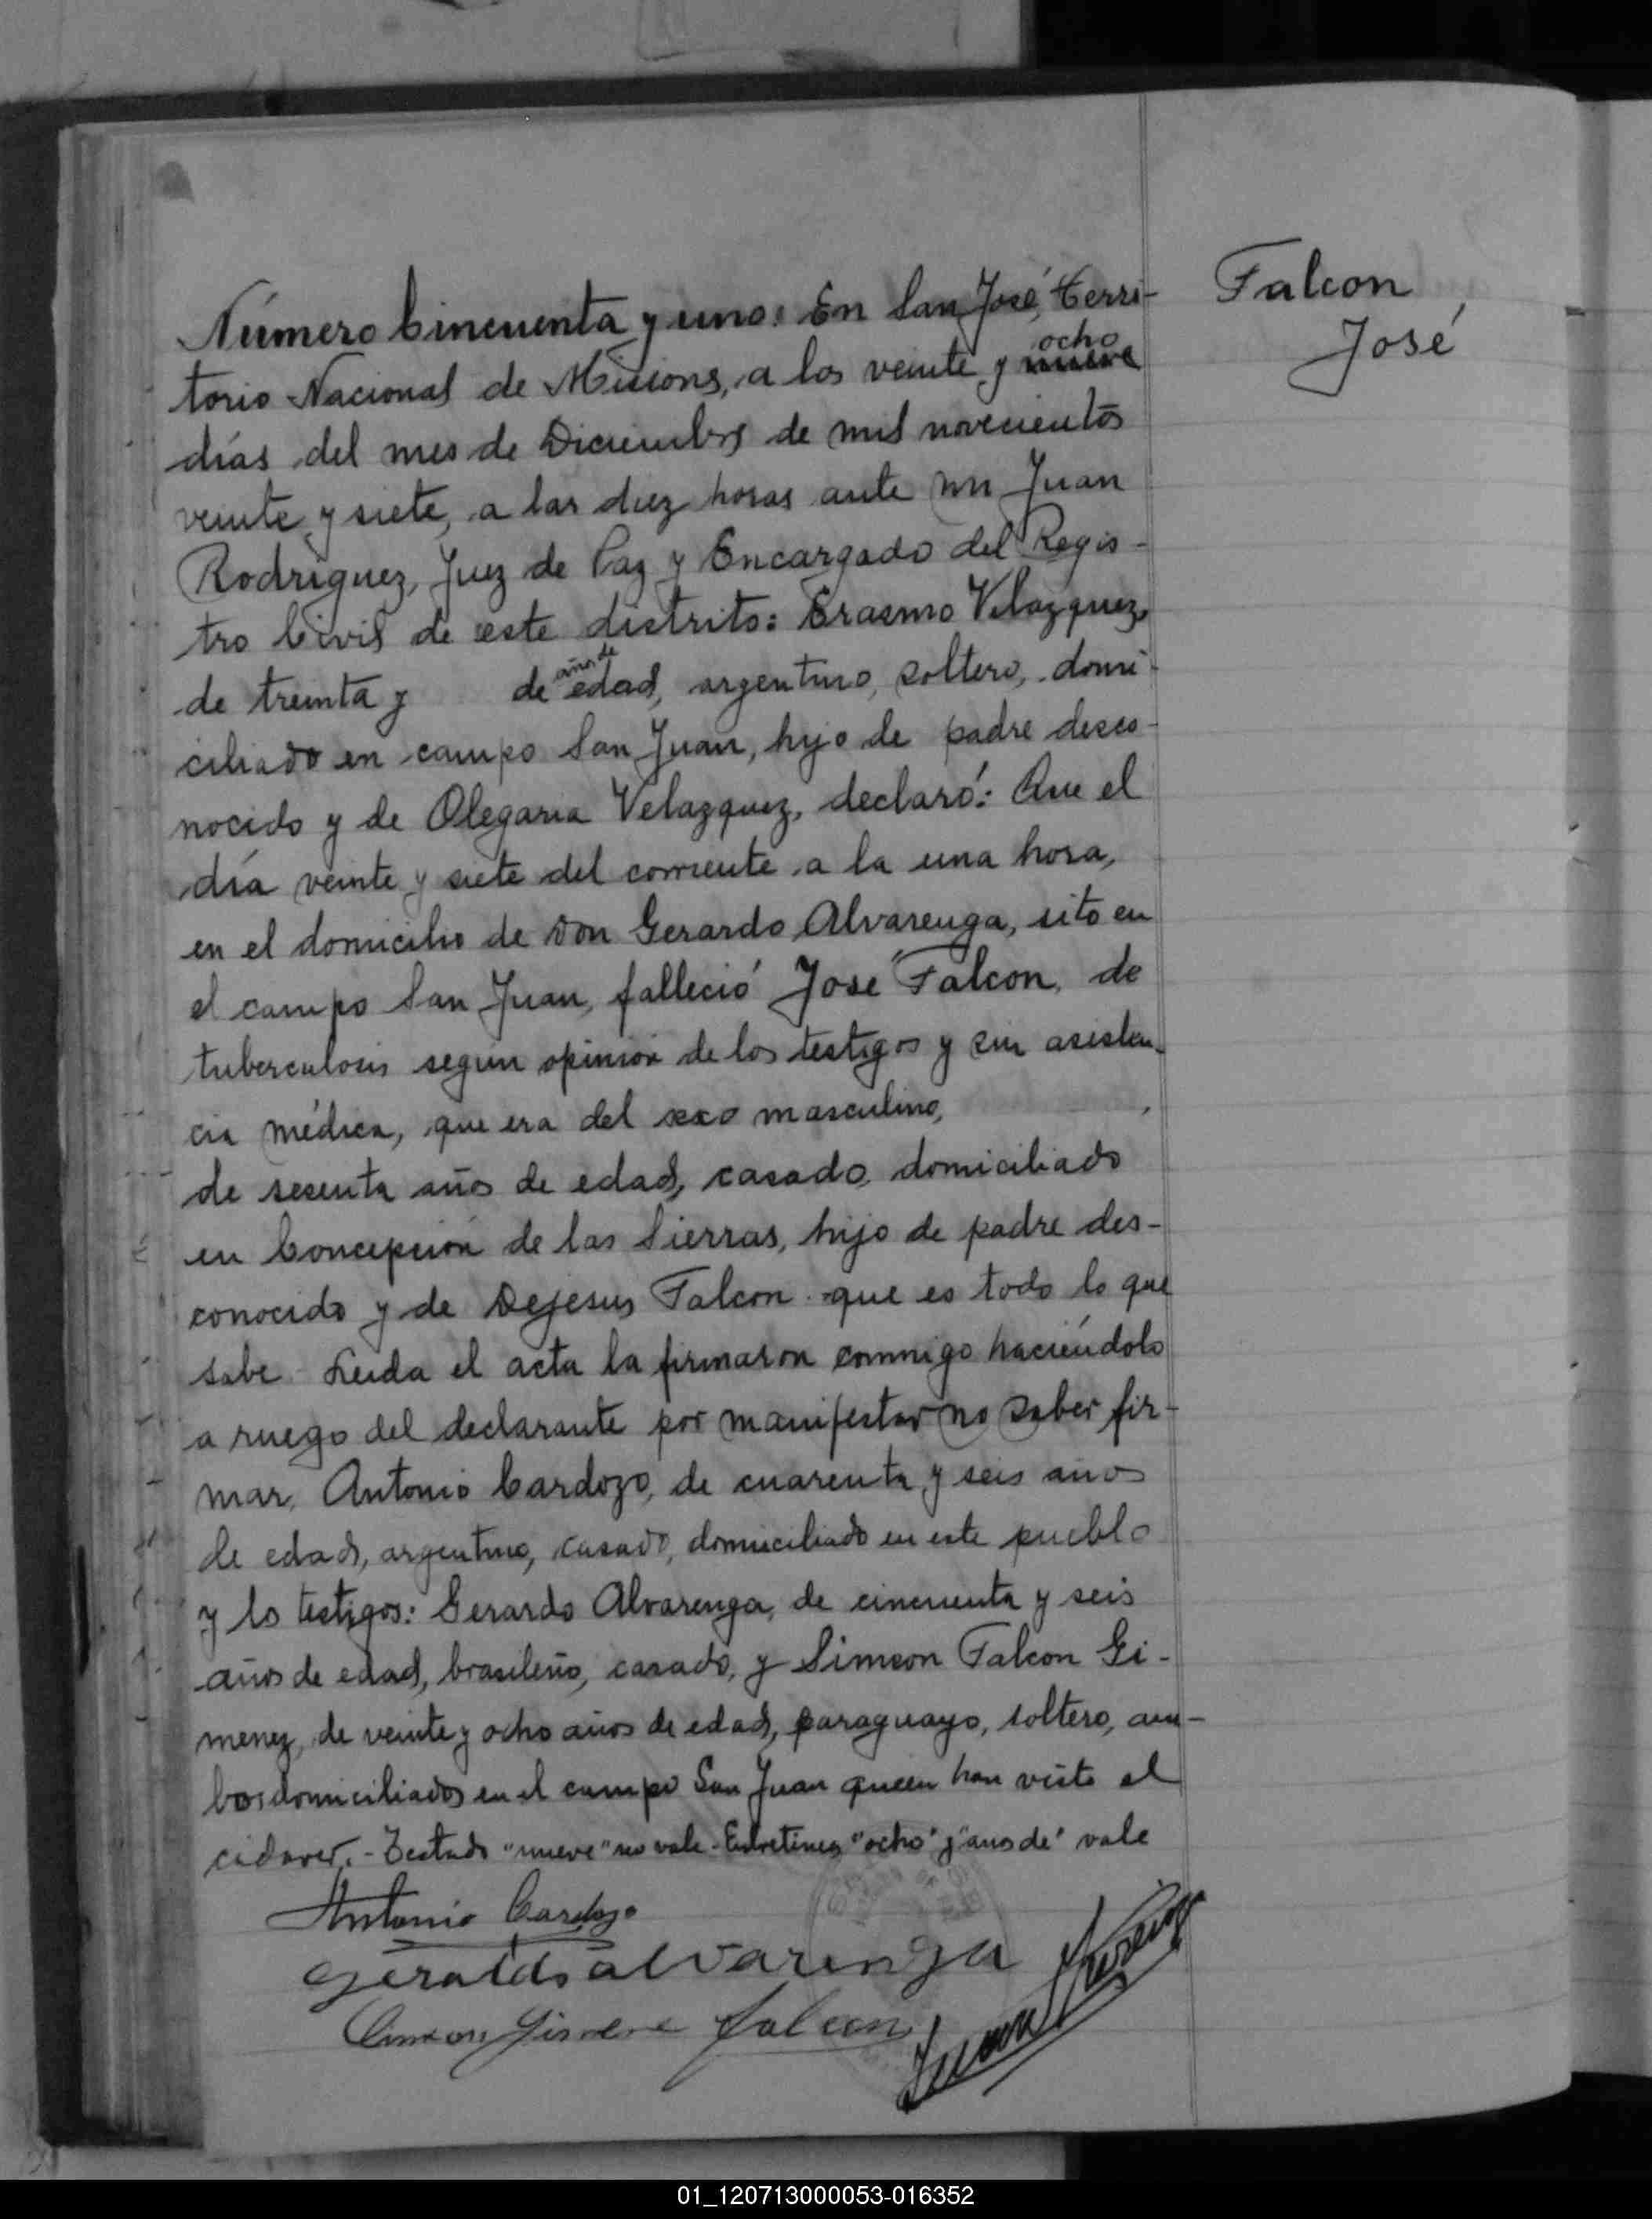 Falcon
José
Número Cincuenta y uno: En San José, Terri-
ocho
torio Nacional de Misions, a los veinte y nueve
días del mes de Diciembre de mil novecientos
veinte y siete, a las diez horas ante mi Juan
Rodriguez, Juez de Paz y Encargado del Regis-
tro Civil de este distrito: Erasmo Velazquez,
años de
de treinta y de edad, argentino, soltero, domi-
ciliado en campo San Juan, hijo de padre desco-
nocido y de Olegaria Velazquez, declaró: Que el
día veinte y siete del corriente a la una hora,
en el domicilio de Don Gerardo Alvarenga, sito en
el campo San Juan, falleció José Falcon, de
tuberculosis según opinión de los testigos y sin asisten-
cia médica, que era del sexo masculino,
de sesenta años de edad, casado, domiciliado
en Concepción de las Sierras, hijo de padre des-
conocido y de Dejesus Falcon que es todo lo que
sabe. Leida el acta la firmaron conmigo haciéndolo
a ruego del declarante por manifestar no saber fir-
mar, Antonio Cardozo, de cuarenta y seis años
de edad, argentino, casado, domiciliado en este pueblo
y los testigos: Gerardo Alvarenga, de cincuenta y seis
años de edad, brasileño, casado, y Simeon Falcon Gi-
menez, de veinte y ocho años de edad, paraguayo, soltero, am-
bos domiciliados en el campo San Juan quien han visto el
cadaver.- Testado "nueve" no vale. Entrelineas "ocho" y "años de" vale
Antonio Cardozo
Geraldo alvarenga
Simeon Jimene falcon
Juan Rodriguez
01_120713000053-016352